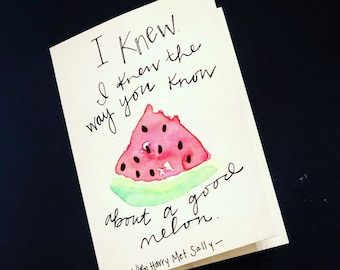 I Knew.
I knew the
way you know
about a good
melon.
When Harry Met Sally—